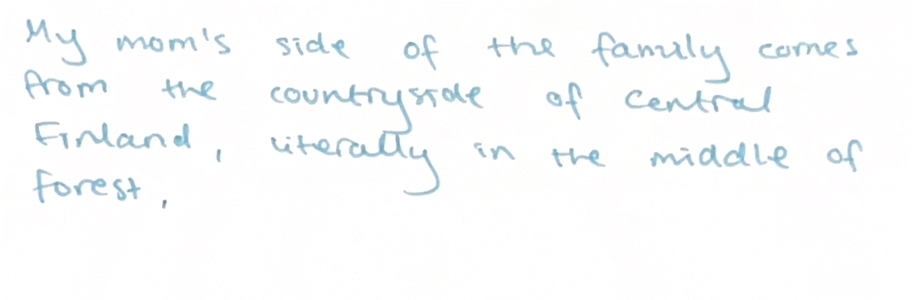 My mom's side of the family comes
from the countryside of central
Finland, literally in the middle of
forest,